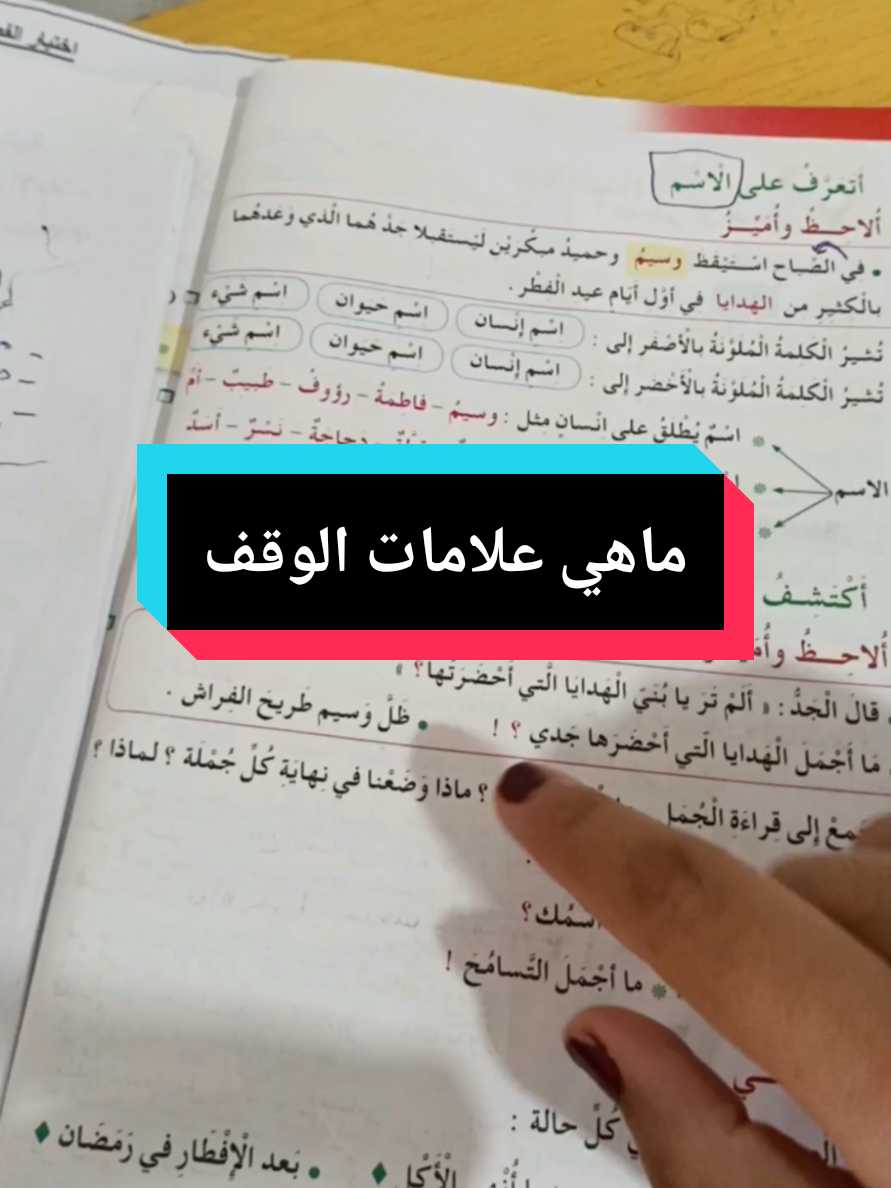 اختبار
أتعرف على الاسم
ألاحظ وأميز
• في الصباح استيقظ وسيم وحميد مبكرين ليستقبلا جدهما الذي وعدهما
بالكثير من الهدايا في أول أيام عيد الفطر .
تشير الكلمة الملونة بالأصفر إلى : اسم إنسان اسم حيوان اسم شيء
تشير الكلمة الملونة بالأخضر إلى : اسم إنسان اسم حيوان اسم شيء
اسم يطلق على إنسان مثل : وسيم – فاطمة – رؤوف – طبيب – أم
دجاجة – نسر – أسد
الاسم
ماهي علامات الوقف
أكتشف
ألاحظ
قال الجد : « ألم تر يا بني الهدايا التي أحضرتها ؟ »
ما أجمل الهدايا التي أحضرها جدي ؟ ! • ظل وسيم طريح الفراش .
إلى قراءة الجمل ؟ ماذا وضعنا في نهاية كل جملة ؟ لماذا ؟
اسمك ؟
ما أجمل التسامح !
كل حالة :
الأكل ♦ • بعد الإفطار في رمضان ♦